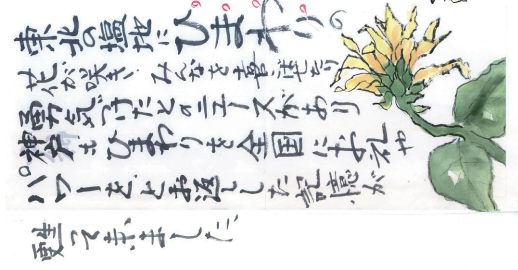 東北の塩地にひまわりの
花が咲き、みんなを喜ばせたり
勇気づけたとのニュースがあり
神戸もひまわりを全国にお礼や
パワーをとお返しした記憶が
って来ました、